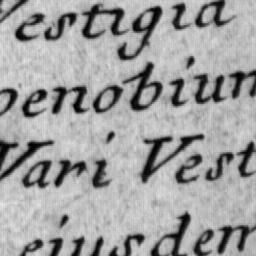 Vestigia
oenobium
Vari Vest
ejusdem